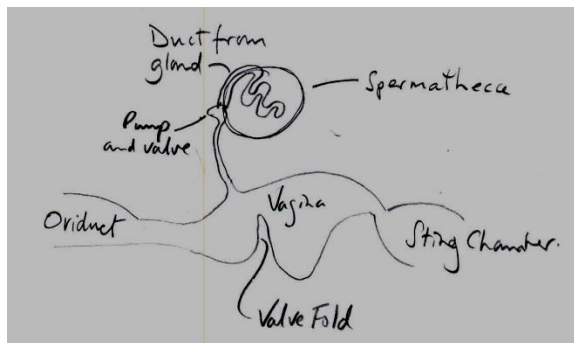 Duct from
gland
Spermatheca
Pump
and valve
Vagina
Oviduct
Sting Chamber.
Valve Fold